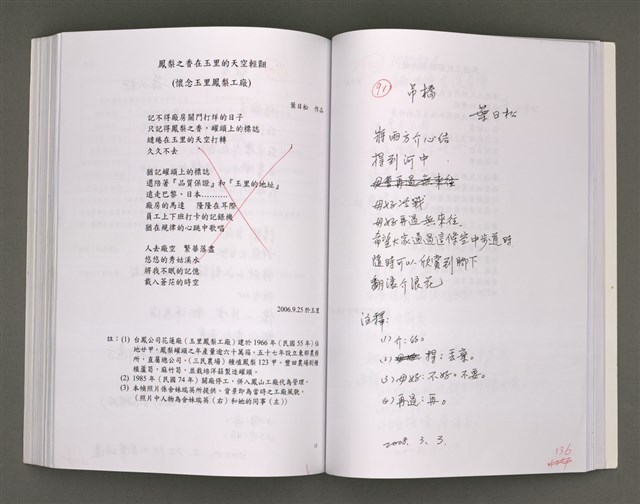 鳳梨之香在玉里的天空輕翻
(懷念玉里鳳梨工廠)
葉日松 作品
記不得廠房關門打烊的日子
只記得鳳梨之香，罐頭上的標誌
繾綣在玉里的天空打轉
久久不去
猶記罐頭上的標誌
還陪著『品質保證』和『玉里的地址』
遠走巴黎、日本………
廠房的馬達 隆隆在耳際
員工上下班打卡的記錄機
猶在規律的心跳中歌唱
人去廠空 繁華落盡
悠悠的秀姑溪水
將我不眠的記憶
載入蒼茫的時空
2006.9.25 於玉里
註：(1) 台鳳公司花蓮廠（玉里鳳梨工廠）建於 1966 年（民國 55 年）佔
地廿甲，鳳梨罐頭之年產量逾六十萬箱，五十七年設立東部農務
所，直屬總公司。（三民農場）種植鳳梨 123 甲，豐田農場則種
植蘆筍、麻竹筍，並栽培洋菇製造罐頭。
(2) 1985 年（民國 74 年）關廠停工，併入鳳山工廠代為管理。
(3) 本幀照片係余妹瑞英所提供，背景即為當時之工廠風貌。
（照片中人物為余妹瑞英（右）和她的同事（左））
91 吊橋
葉日松
將兩方介心結
捍到河中
毋好再過無來往
毋好冷戰
毋好再過無來往
希望大家通過這條空中步道時
隨時可以欣賞到腳下
翻滾介浪花
注釋：
(1) 介：的。
(2) 捍：丟棄。
(3) 毋好：不好。不要。
(4) 再過：再。
2008. 3. 3.
136